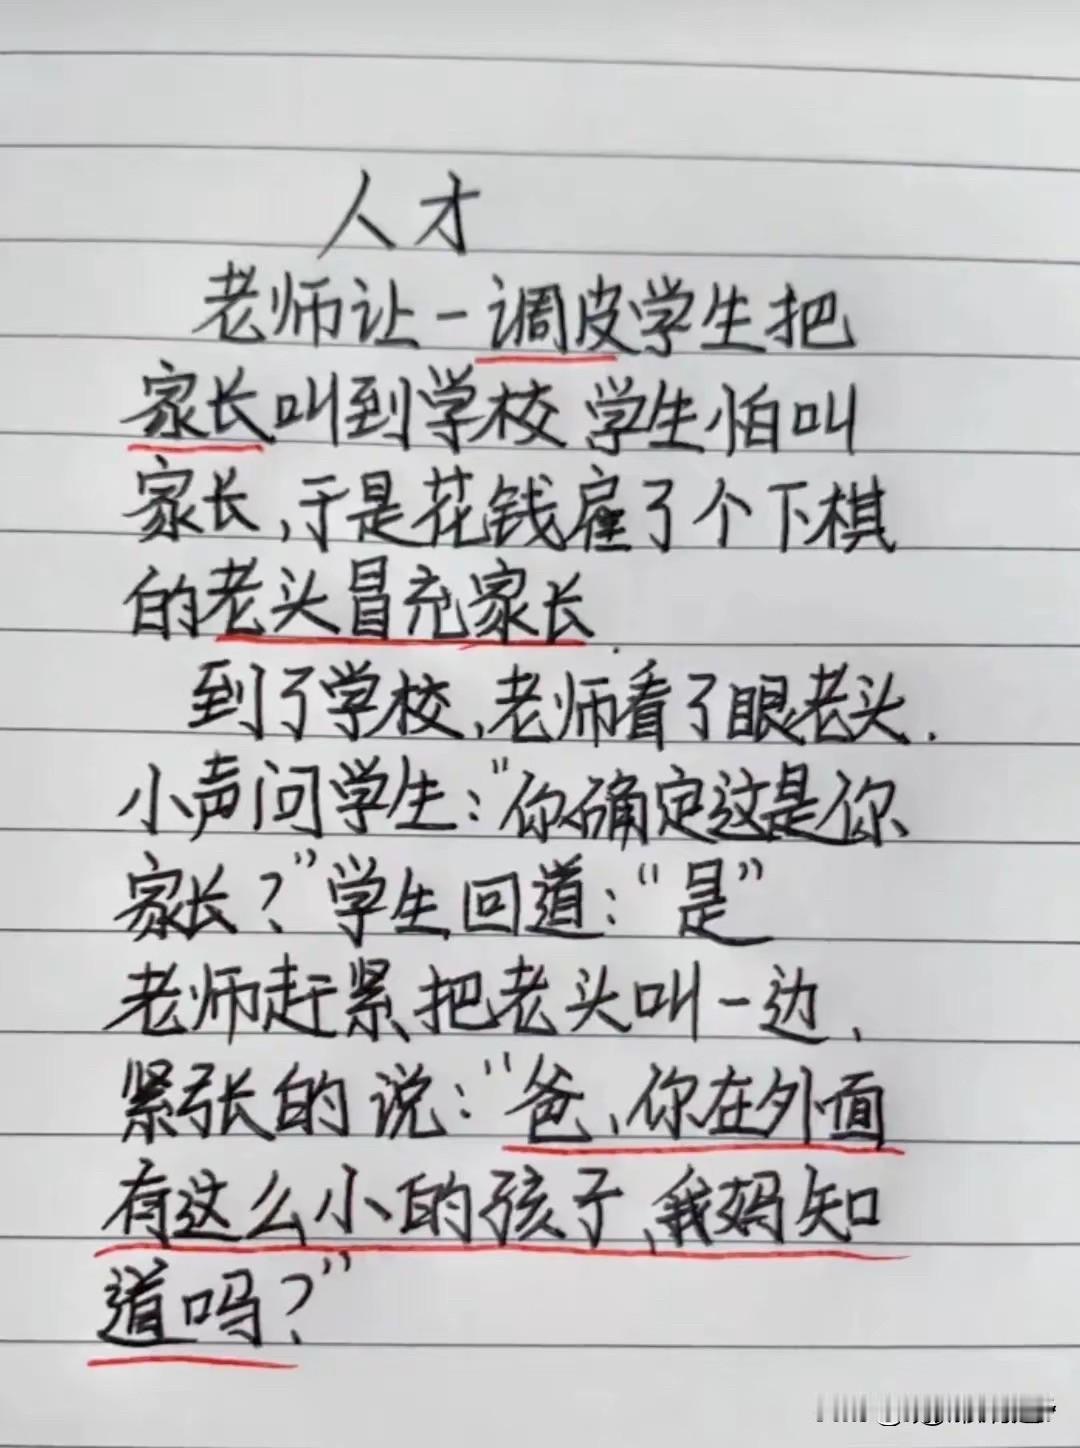 人才
老师让一调皮学生把
家长叫到学校 学生怕叫
家长,于是花钱雇了个下棋
的老头冒充家长.
到了学校,老师看了眼老头.
小声问学生:"你确定这是你
家长?"学生回道:"是"
老师赶紧把老头叫一边,
紧张的说:"爸,你在外面
有这么小的孩子,我妈知
道吗?"